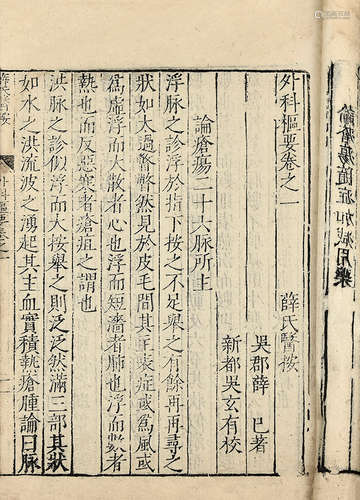 外科樞要卷之一
薛氏醫按
吳郡薛 已著
新都吳玄有校
論瘡瘍二十六脉所主
浮脉之診浮於指下按之不足舉之有餘再再尋之
狀如太過瞥瞥然見於皮毛間其主表症或為風或
為虛浮而大散者心也浮而短濇者肺也浮而數者
熱也而反惡寒者瘡疽之謂也
洪脉之診似浮而大按舉之則泛泛然滿三部其狀
如水之洪流波之湧起其主血實積熱瘡腫論曰脉
論瘡瘍隨症加減用藥